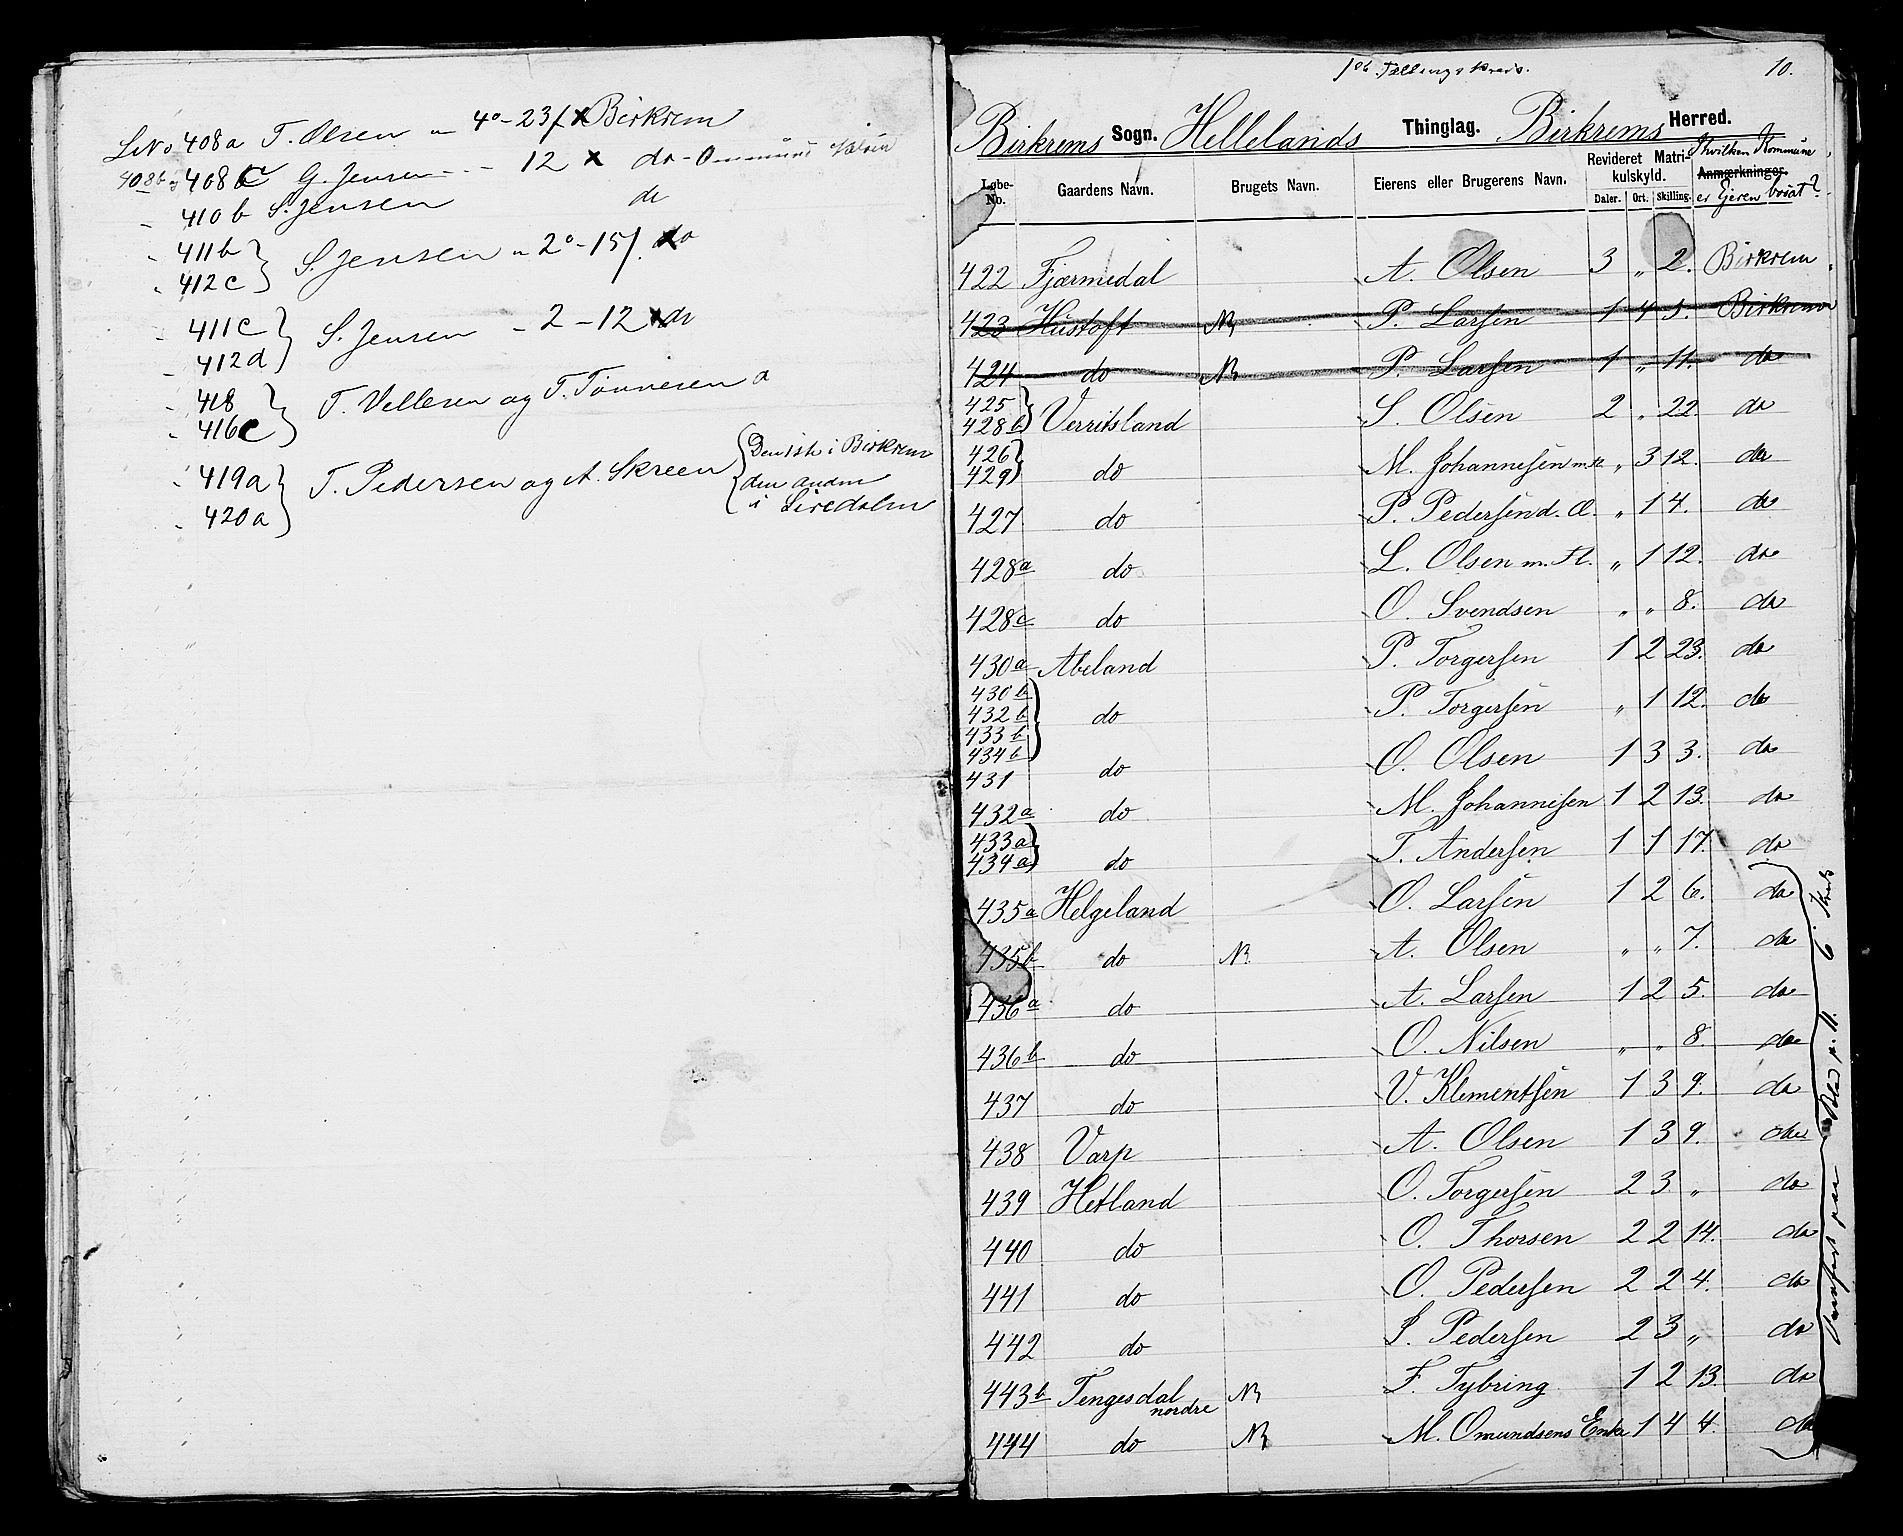 LNo 408a T. Olsen " 4o-23/ x Birkrem
408b og 408c G. Jensen - - 12 x do -
" 410b S. Jensen do
" 411b
" 412c } S. Jensen " 2o-15/. x do
411c
" 412d } S. Jensen - 2-12 x do
" 418
" 416c } T. Vellesen og T. Tønnesen d
" 419a
" 420a } T. Pedersen og A. Skreen { Den 1ste i Birkrem
den anden
i Siredalen
10.
Tællingskreds.
Birkrems Sogn. Hellelands Thinglag. Birkrems Herred.
Løbe-No. Gaardens Navn. Brugets Navn. Eierens eller Brugerens Navn. Revideret Matrikulskyld. Daler. Ort. Skilling. Anmærkninger. I hvilken Kommune er Ejeren bosat?
422 Fjærmedal A. Olsen 3 " 2. Birkrem
423 Hustoft N. P. Larsen 1 4 5. Birkrem
424 do N. P. Larsen 1 " 11. do
425
428b } Verritsland S. Olsen 2 " 22. do
426
429 } do M. Johannesen m. fl. " 3 12. do
427 do P. Pedersen d. Æ. " 1 4. do
428a do L. Olsen m. Fl. " 1 12. do
428c do O. Svendsen " " 8. do
430a Abeland P. Torgersen 1 2 23. do
430b
432b
433b
434b } do P. Torgersen " 1 12. do
431 do O. Olsen 1 3 3. do
432a do M. Johannesen 1 2 13. do
433a
434a } do T. Andersen 1 1 17. do
435a Helgeland O. Larsen 1 2 6. do
435b do N. A. Olsen " " 7. do
436a do A. Larsen 1 2 5. do
436b do O. Nilsen " " 8. do
437 do V. Klementsen 1 3 9. do
438 Varp A. Olsen 1 3 9. do
439 Hetland O. Torgersen 2 3 " do
440 do O. Thorsen 2 2 14. do
441 do O. Pedersen 2 2 4. do
442 do S. Pedersen 2 3 " do
443b Tengesdal nordre N. F. Tybring 1 2 13. do
444 do N. M. Omundsens Enke 1 4 4. do
p. 11.